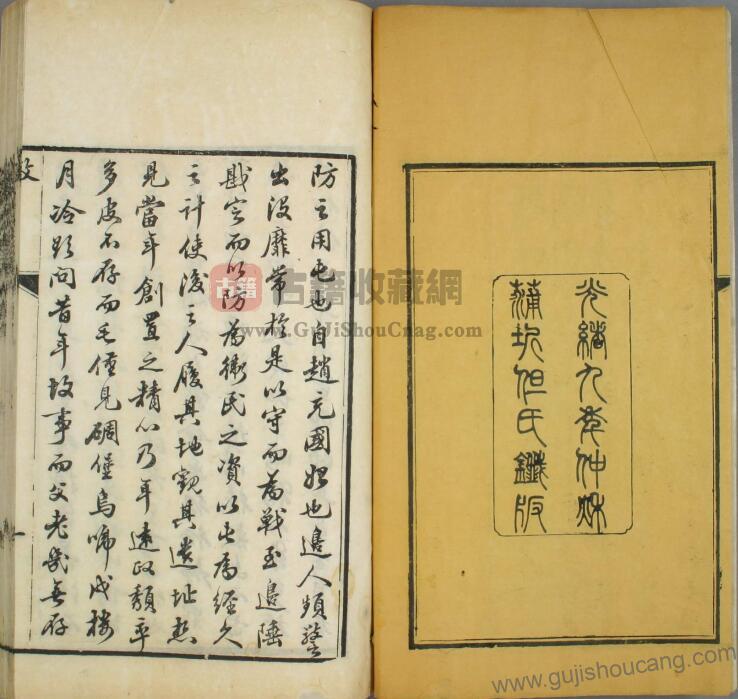 光緒九年仲秋
蒲圻但氏鐫版
防之用屯也自趙充國始也邊人頻警
出没靡常於是以守而為戰至邊陲
戡定而以防為衛民之資以屯為經久
之計使後之人履其地觀其遺址想
見當年創置之精心乃年遠政頹
多皮不存而毛僅見碉堡烏啼戍樓
月冷欲問昔年故事而父老幾無存
敘
古籍 古籍收藏網
www.GuJiShouCnag.com
www.gujishoucang.com